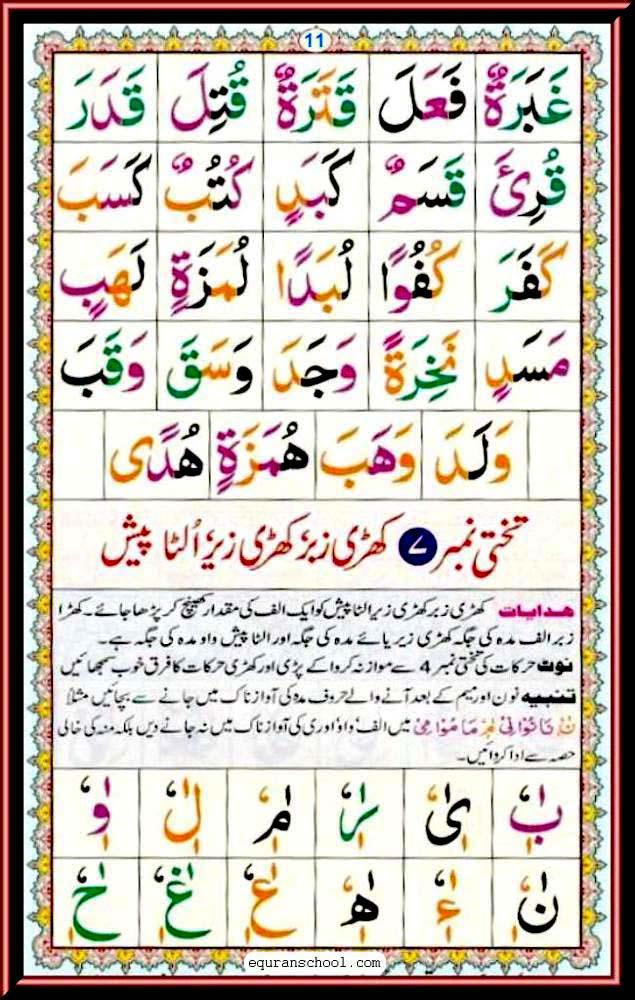 11
غَبَرَةٌ فَعَلَ قَتَرَةٌ قُتِلَ قَدَرَ
قُرِئَ قَسَمٌ كَبَدٍ كُتُبٌ كَسَبَ
كَفَرَ كُفُوًا لُبَدًا لُمَزَةٍ لَهَبٍ
مَسَدٍ نَخِرَةً وَجَدَ وَسَقَ وَقَبَ
وَلَدَ وَهَبَ هُمَزَةٍ هُدًى
تختی نمبر ۷ کھڑی زبر کھڑی زیر اُلٹا پیش
ھدایات کھڑی زبر کھڑی زیر الٹا پیش کو ایک الف کی مقدار کھینچ کر پڑھا جائے۔ کھڑا
زبر الف مدہ کی جگہ کھڑی زیر یائے مدہ کی جگہ اور الٹا پیش واو مدہ کی جگہ ہے۔
نوٹ حرکات کی تختی نمبر 4 سے موازنہ کروا کے پڑی اور کھڑی حرکات کا فرق خوب سمجھائیں
تنبیہ نون اور میم کے بعد آنے والے حروف مدہ کی آواز ناک میں جانے سے بچائیں مثلاً
میں الف واؤ اور ی کی آواز ناک میں نہ جانے دیں بلکہ منہ کی خالی
حصہ سے ادا کروائیں۔
بٰٖٗ یٰٖٗ رٰٖٗ مٰٖٗ لٰٖٗ وٰٖٗ
نٰٖٗ ءٰٖٗ هٰٖٗ عٰٖٗ غٰٖٗ حٰٖٗ
equranschool.com